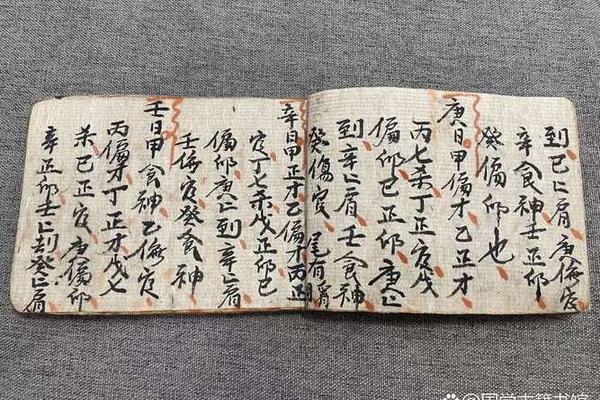 到己比肩庚傷官
辛食神壬正印
癸偏印也
庚日甲偏才乙正才
丙七杀丁正官戊
偏印己正印庚比
到辛比肩壬食神
癸傷官
辛日甲正才乙偏才丙正
官丁七杀戊正印己
偏印庚比到辛比肩
壬傷官癸食神
壬日甲食神乙傷官
丙偏才丁正才戊七
杀己正官庚偏印
辛正印壬比刦癸比肩
国学古籍书馆